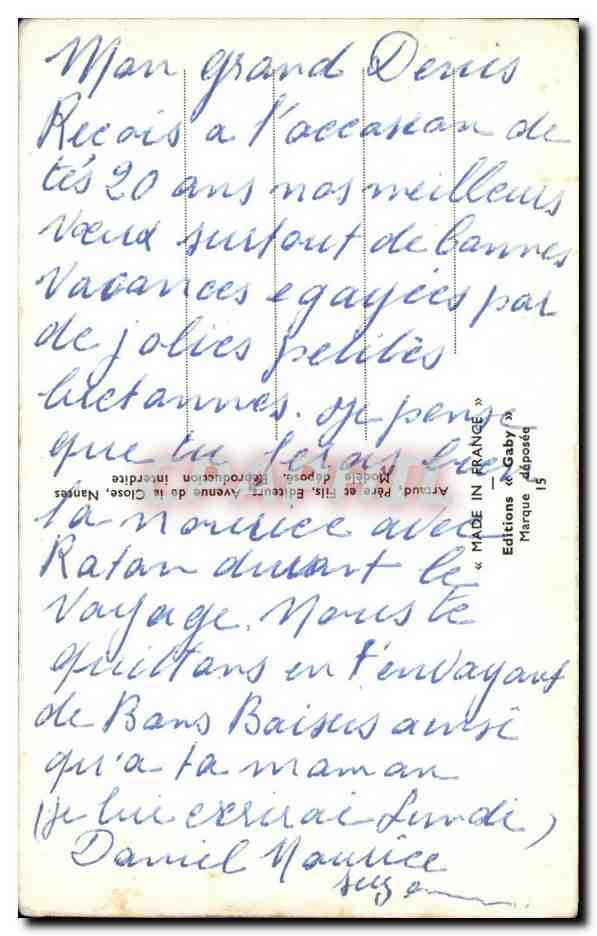 Mon grand Denis
Reçois a l'occasion de
tes 20 ans nos meilleurs
vœux surtout de bonnes
vacances egayées par
de jolies petites
bretonnes. Je pense
que tu feras bien
la nourice avec
Ratan durant le
voyage. Nous te
quittons en t'envoyant
de Bons Baisers ainsi
qu'a ta maman
(je lui ecrirai Lundi)
Daniel Maurice
Artaud, Père et Fils, Editeurs, Avenue de la Close, Nantes
Modèle déposé. Reproduction interdite
« MADE IN FRANCE »
Editions « Gaby »
Marque déposée
15